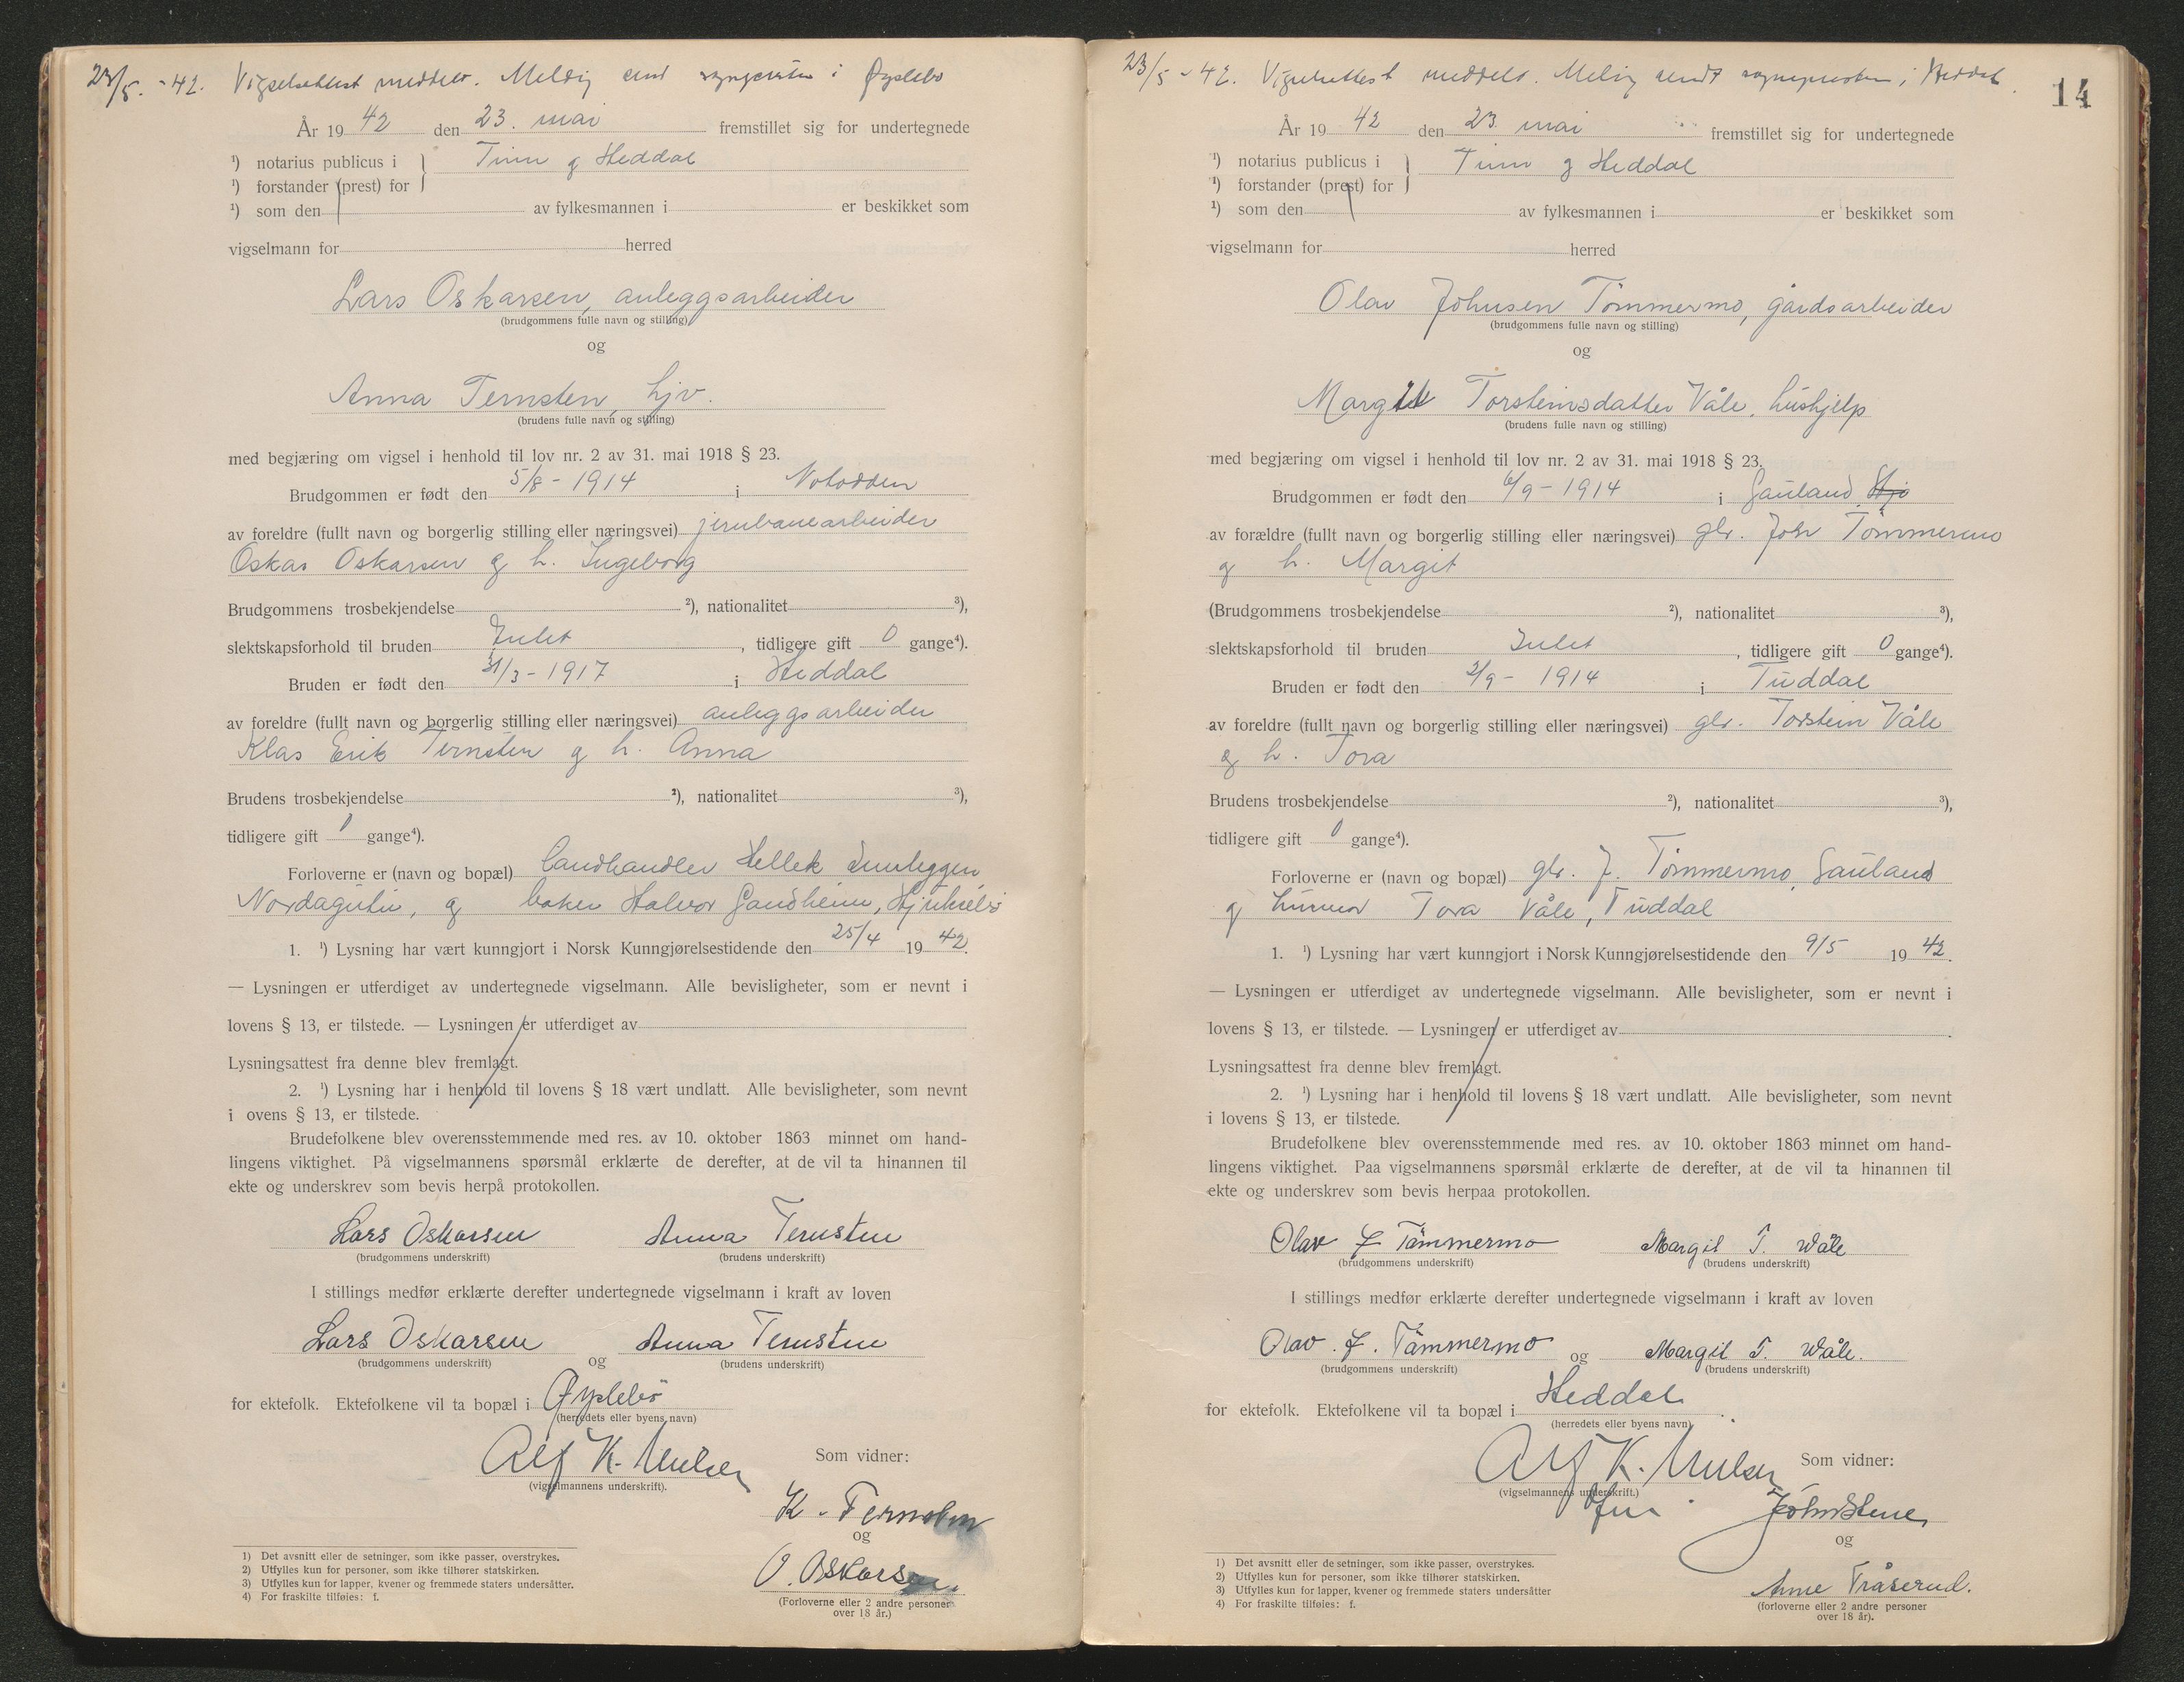 23/5. -42. Vigselsattest meddelt. Melding sendt sognepresten i Øyslebø
År 19 42 den 23. mai fremstillet sig for undertegnede
¹) notarius publicus i } Tinn og Heddal
¹) forstander (prest) for
¹) som den av fylkesmannen i er beskikket som
vigselmann for herred
Lars Oskarsen, anleggsarbeider
(brudgommens fulle navn og stilling)
og
Anna Ternsten, hjv.
(brudens fulle navn og stilling)
med begjæring om vigsel i henhold til lov nr. 2 av 31. mai 1918 § 23.
Brudgommen er født den 5/8 - 1914 i Notodden
av foreldre (fullt navn og borgerlig stilling eller næringsvei) jernbanearbeider
Oskar Oskarsen og h. Ingeborg
Brudgommens trosbekjendelse ²), nationalitet ³),
slektskapsforhold til bruden Intet , tidligere gift 0 gange⁴).
Bruden er født den 31/3 - 1917 i Heddal
av foreldre (fullt navn og borgerlig stilling eller næringsvei) anleggsarbeider
Klas Erik Ternsten og h. Anna
Brudens trosbekjendelse ²), nationalitet ³),
tidligere gift 0 gange⁴).
Forloverne er (navn og bopæl) landhandler Hellek
Nordagutu, og baker Halvor Sandheim, Hjuksebø
1. ¹) Lysning har vært kunngjort i Norsk Kunngjørelsestidende den 25/4 19 42.
— Lysningen er utferdiget av undertegnede vigselmann. Alle bevisligheter, som er nevnt i
lovens § 13, er tilstede. — Lysningen er utferdiget av
Lysningsattest fra denne blev fremlagt.
2. ¹) Lysning har i henhold til lovens § 18 vært undlatt. Alle bevisligheter, som nevnt
i ovens § 13, er tilstede.
Brudefolkene blev overensstemmende med res. av 10. oktober 1863 minnet om hand-
lingens viktighet. På vigselmannens spørsmål erklærte de derefter, at de vil ta hinannen til
ekte og underskrev som bevis herpå protokollen.
Lars Oskarsen Anna Ternsten
(brudgommens underskrift) (brudens underskrift)
I stillings medfør erklærte derefter undertegnede vigselmann i kraft av loven
Lars Oskarsen og Anna Ternsten
(brudgommens underskrift) (brudens underskrift)
for ektefolk. Ektefolkene vil ta bopæl i Øyslebö
(herredets eller byens navn)
Alf K. Som vidner:
(vigselmannens underskrift).
K. Ternsten
og
O. Oskarsen.
(Forloverne eller 2 andre personer
over 18 år.)
1) Det avsnitt eller de setninger, som ikke passer, overstrykes.
2) Utfylles kun for personer, som ikke tilhører statskirken.
3) Utfylles kun for lapper, kvener og fremmede staters undersåtter.
4) For fraskilte tilføies: f.
23/5 - 42. Vigselsattest meddelt. Melding sendt sognepresten i Heddal.
14
År 19 42 den 23. mai fremstillet sig for undertegnede
¹) notarius publicus i } Tinn og Heddal
¹) forstander (prest) for
¹) som den av fylkesmannen i er beskikket som
vigselmann for herred
Olav Johnsen Tömmermo, gårdsarbeider
(brudgommens fulle navn og stilling)
og
Margit Torsteinsdatter Våle, hushjelp
(brudens fulle navn og stilling)
med begjæring om vigsel i henhold til lov nr. 2 av 31. mai 1918 § 23.
Brudgommen er født den 6/9 - 1914 i Sauland
av forældre (fullt navn og borgerlig stilling eller næringsvei) gbr. John Tömmermo
og h. Margit
(Brudgommens trosbekjendelse ²), nationalitet ³),
slektskapsforhold til bruden Intet , tidligere gift 0 gange⁴).
Bruden er født den 2/9 - 1914 i Tuddal
av foreldre (fullt navn og borgerlig stilling eller næringsvei) gbr. Torstein Våle
og h. Tora
Brudens trosbekjendelse ²), nationalitet ³),
tidligere gift 0 gange⁴).
Forloverne er (navn og bopæl) gbr. J. Tömmermo, Sauland
og husmor Tora Våle, Tuddal
1. ¹) Lysning har vært kunngjort i Norsk Kunngjørelsestidende den 9/5 19 42.
— Lysningen er utferdiget av undertegnede vigselmann. Alle bevisligheter, som er nevnt i
lovens § 13, er tilstede. — Lysningen er utferdiget av
Lysningsattest fra denne blev fremlagt.
2. ¹) Lysning har i henhold til lovens § 18 vært undlatt. Alle bevisligheter, som nevnt
i lovens § 13, er tilstede.
Brudefolkene blev overensstemmende med res. av 10. oktober 1863 minnet om hand-
lingens viktighet. Paa vigselmannens spørsmål erklærte de derefter, at de vil ta hinannen til
ekte og underskrev som bevis herpaa protokollen.
Olav J Tämmermo Margit T. Wåle
(brudgommens underskrift) (brudens underskrift)
I stillings medfør erklærte derefter undertegnede vigselmann i kraft av loven
Olav. J. Tämmermo og Margit T. Wåle.
(brudgommens underskrift) (brudens underskrift)
for ektefolk. Ektefolkene vil ta bopæl i Heddal
(herredets eller byens navn)
Alf K. Som vidner:
(vigselmannens underskrift.)
John Stene
og
Anne Tråserud.
(forloverne eller 2 andre personer
over 18 år).
1) Det avsnitt eller de setninger, som ikke passer, overstrykes.
2) Utfylles kun for personer, som ikke tilhører statskirken.
3) Utfylles kun for lapper, kvener og fremmede staters undersåtter
4) For fraskilte tilføies: f.